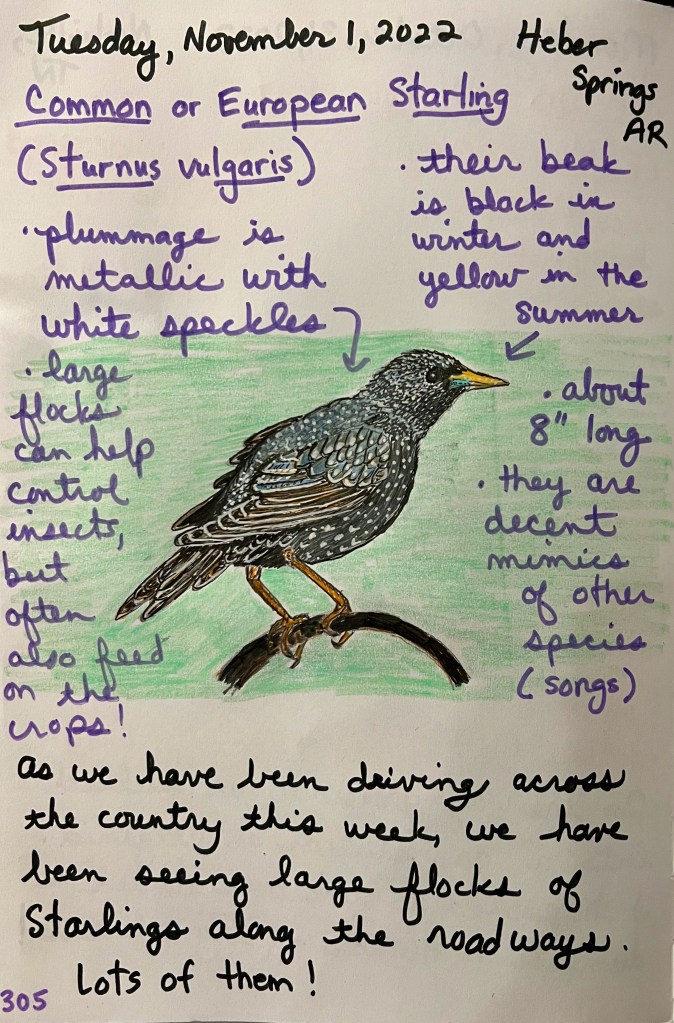 Tuesday, November 1, 2022
Heber
Springs
AR
Common or European Starling
(Sturnus vulgaris)
· plummage is
metallic with
white speckles
· their beak
is black in
winter and
yellow in the
summer
· large
flocks
can help
control
insects,
but
often
also feed
on the
crops!
· about
8" long
· they are
decent
mimics
of other
species
(songs)
As we have been driving across
the country this week, we have
been seeing large flocks of
Starlings along the roadways.
Lots of them!
305